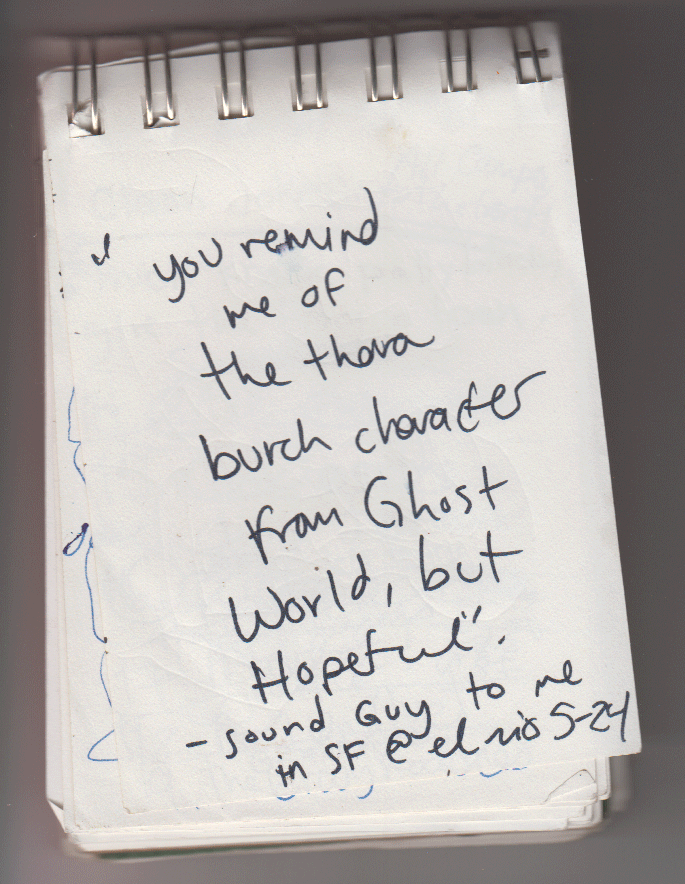 " you remind
me of
the thora
burch character
from Ghost
World, but
Hopeful".
- sound Guy to me
in SF @ el rio 5-24